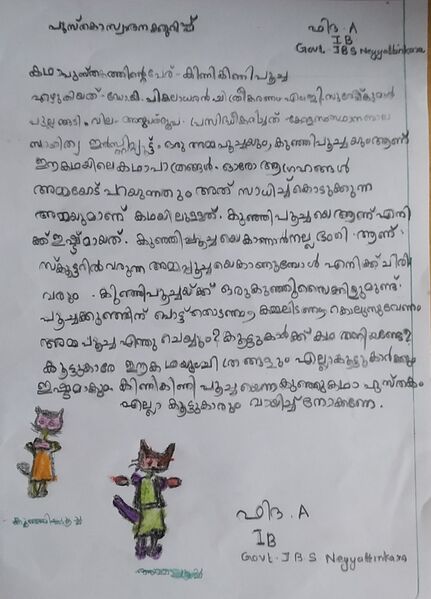 പുസ്തകാസ്വാദനക്കുറിപ്പ്
ഫിദ . A
I B
Govt. J B S Neyyattinkara
കഥാപുസ്തകത്തിന്റെ പേര് - കിണികിണിപൂച്ച
എഴുതിയത് - ഡോ.കി. ചിത്രീകരണം
വില - പ്രസിദ്ധീകരിച്ചത് - കേരളസംസ്ഥാനബാല
സാഹിത്യ ഇൻസ്റ്റിറ്റ്യൂട്ട്. ഒരു അമ്മപൂച്ചയും കുഞ്ഞിപൂച്ചയും ആണ്
ഈ കഥയിലെ കഥാപാത്രങ്ങൾ. ഓരോ ആഗ്രഹങ്ങൾ
അമ്മയോട് പറയുന്നതും അത് സാധിച്ച് കൊടുക്കുന്ന
അമ്മയുമാണ് കഥയിലുള്ളത്. കുഞ്ഞിപൂച്ചയെ ആണ് എനി
ക്ക് ഇഷ്ടമായത്. കുഞ്ഞിപ്പൂച്ചയെ കാണാൻ നല്ല ഭംഗി ആണ്.
സ്കൂട്ടറിൽ വരുന്ന അമ്മപ്പൂച്ചയെ കാണുമ്പോൾ എനിക്ക് ചിരി
വരും . കുഞ്ഞിപൂച്ചയ്ക്ക് ഒരു കുഞ്ഞിസൈക്കിളുമുണ്ട്.
പൂച്ചക്കുഞ്ഞിന് കമ്മലിടണം കൊലുസുവേണം
അമ്മപൂച്ച എന്തു ചെയ്യും? കൂട്ടുകാർക്ക് കഥ അറിയണ്ടേ?
കൂട്ടുകാരേ ഈ കഥയും ചിത്രങ്ങളും എല്ലാകൂട്ടുകാർക്കും
ഇഷ്ടമാകും കിണികിണി പൂച്ചയെന്ന കുഞ്ഞുകഥാ പുസ്തകം
എല്ലാ കൂട്ടുകാരും വായിച്ച് നോക്കണേ.
കുഞ്ഞിപൂച്ച
അമ്മപൂച്ച
ഫിദ . A
I B
Govt - J B S Neyyattinkara